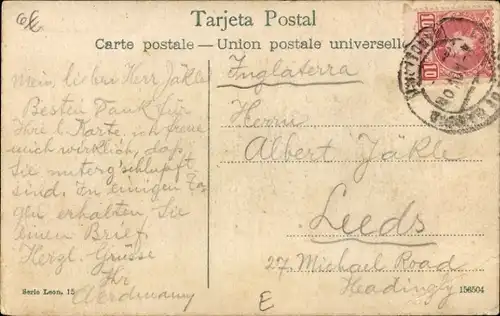 Tarjeta Postal
Carte postale — Union postale universelle
Inglaterra
Mein lieber Herr Jäkle
Besten Dank für
Ihre l. Karte, ich freue
mich wirklich, dass
Sie unterg'schlupft
sind. In einigen Ta-
gen erhalten Sie
einen Brief.
Herzl. Grüsse
Ihr
Herrn
Albert Jäkle
Leeds
27. Michael Road
Headingly
E
Serie Leon, 15
156504
10
10